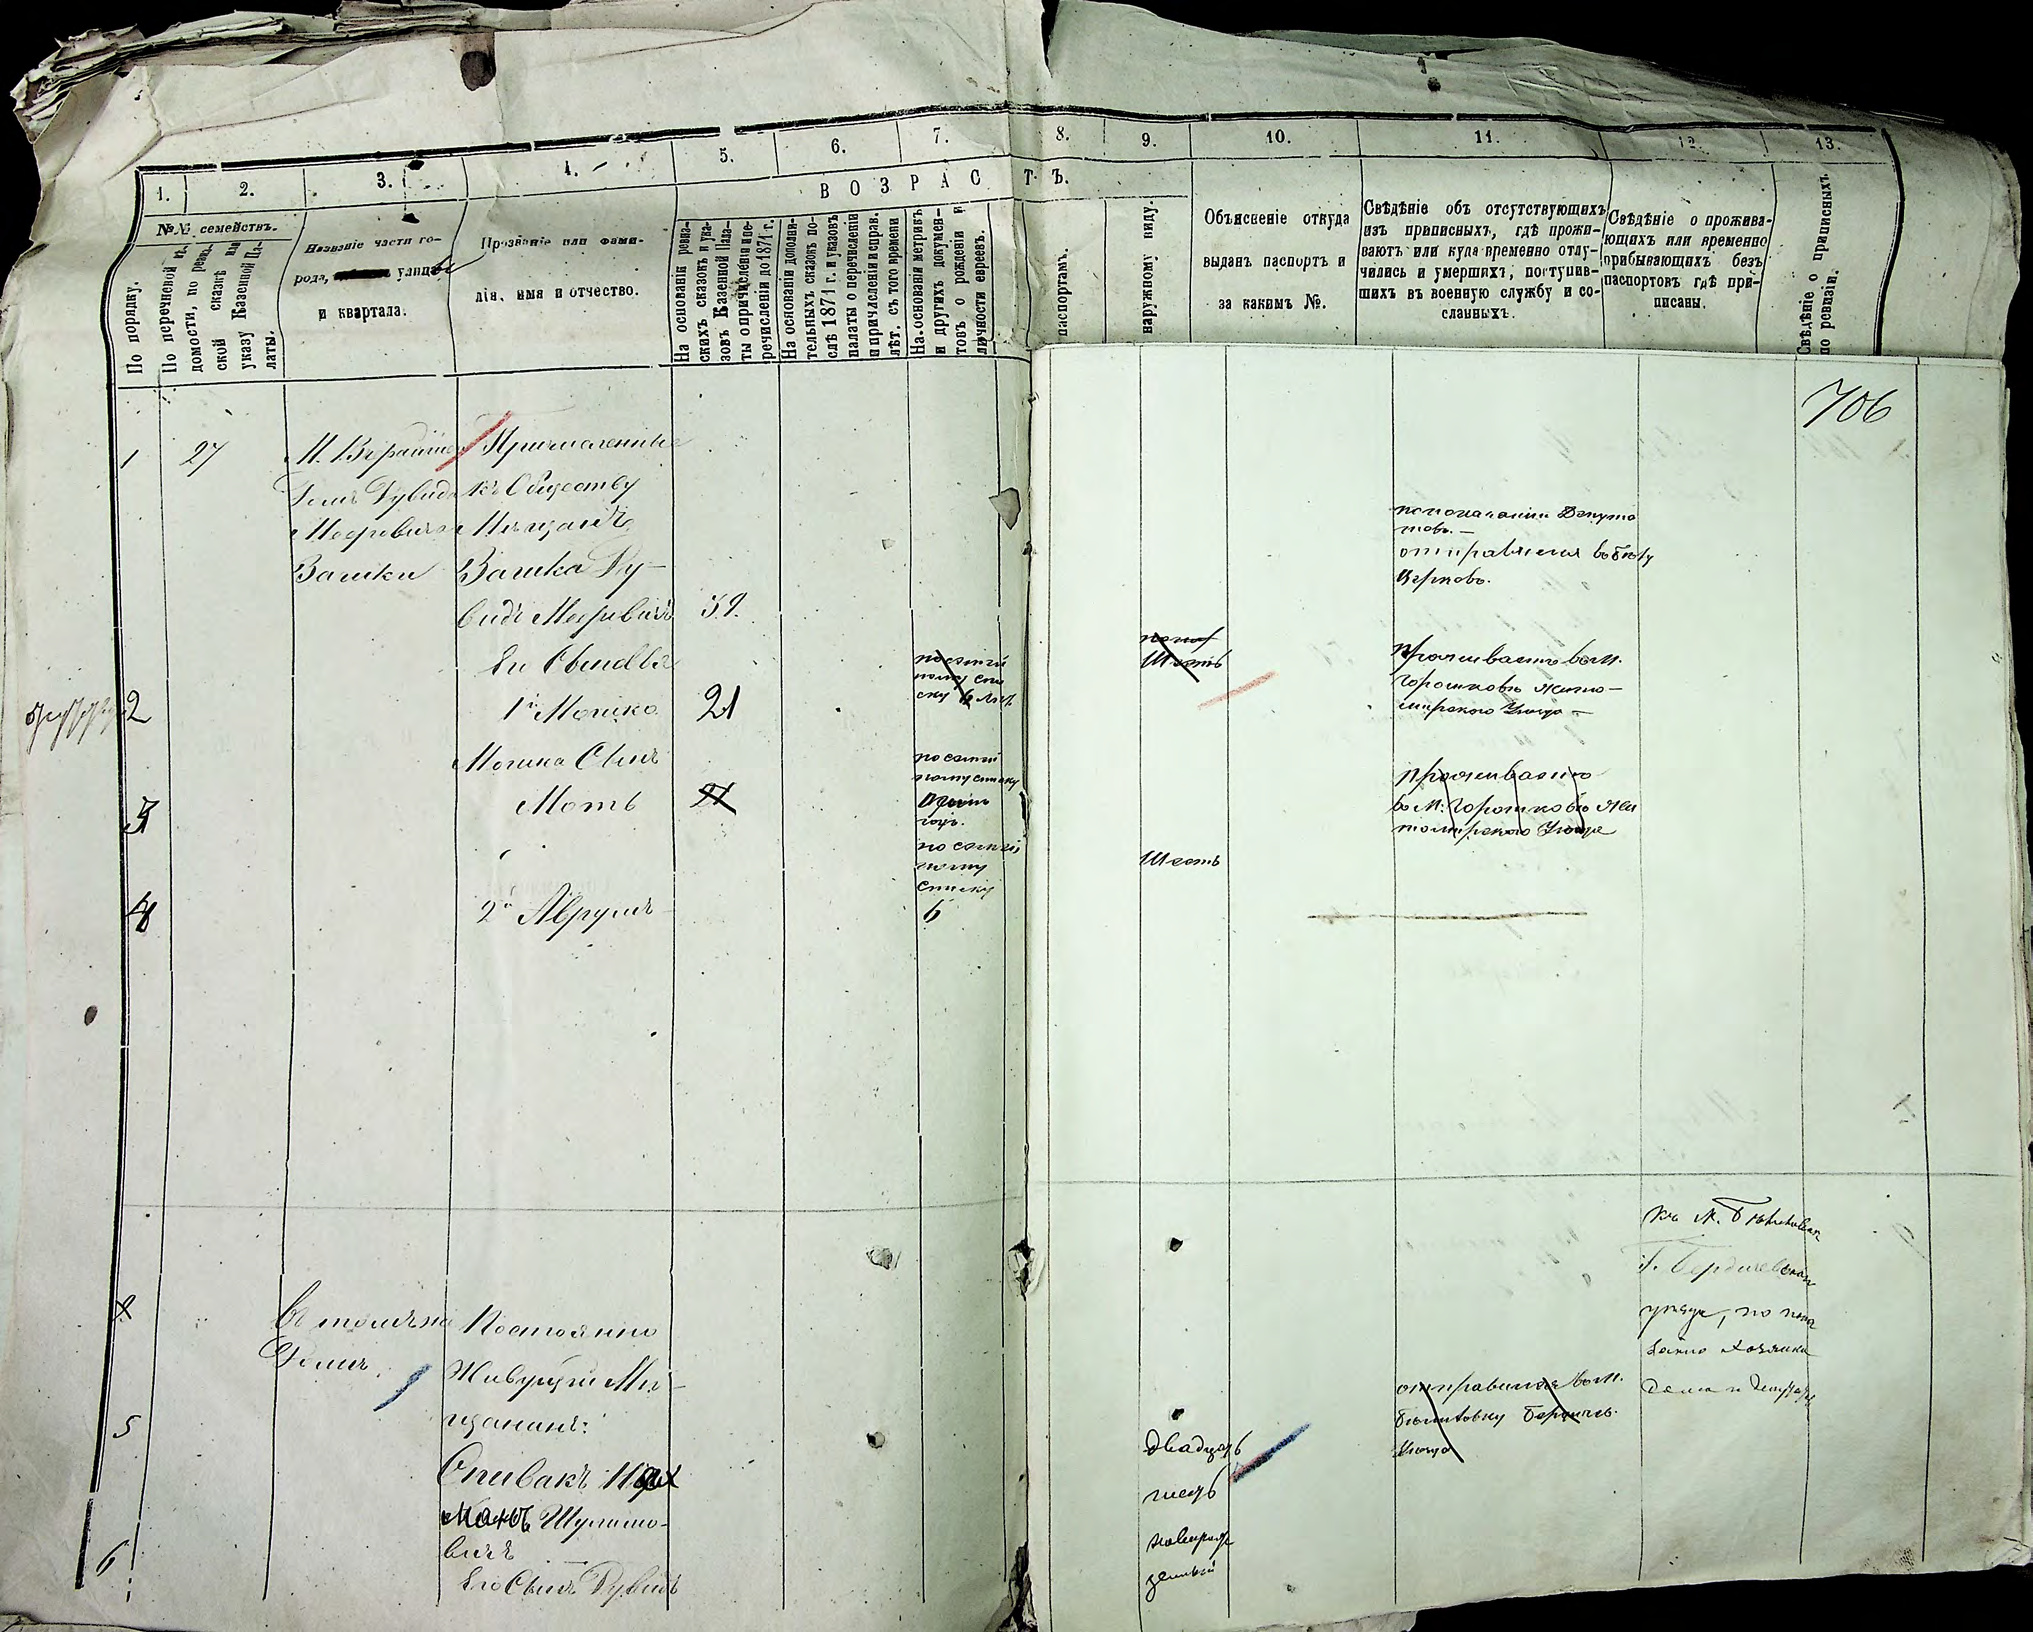 1. 2. 3. 4. 5. 6. 7. 8. 9. 10. 11. 12. 13.
В О З Р А С Т Ъ.
№№ семействъ.
По порядку.
По перечневой вѣ-
домости, по ревиз-
ской сказкѣ или
указу Казенной Па-
латы.
Названіе части го-
рода, улицы
и квартала.
Прозваніе или фами-
лія, имя и отчество.
На основаніи ревиз-
скихъ сказокъ и ука-
зовъ Казенной Пала-
ты о причисленіи и пе-
речисленіи до 1871 г.
На основаніи дополни-
тельныхъ сказокъ по-
слѣ 1871 г. и указовъ
палаты о перечисленіи
и причисленіи и справ.
лѣт. съ того времени
На основаніи метрикъ
и другихъ докумен-
товъ о рожденіи и
личности евреевъ.
паспортамъ.
наружному виду.
Объясненіе откуда
выданъ паспортъ и
за какимъ №.
Свѣдѣніе объ отсутствующихъ
изъ приписныхъ, гдѣ прожи-
ваютъ или куда временно отлу-
чились и умершихъ, поступив-
шихъ въ военную службу и со-
сланныхъ.
Свѣдѣніе о прожива-
ющихъ или временно
прибывающихъ безъ
паспортовъ гдѣ при-
писаны.
Свѣдѣніе о приписныхъ
по ревизіи.
706
1 27
Домъ Дувида
Мееровича
Вашки
Причисленные
къ Обществу
Мѣщанъ
Вашка Ду-
видъ Мееровичъ 39.
отправился въ Бѣлу
Церковь.
Его Сыновья
2 1й Мошко 21
Шесть
проживаетъ въ м.
Горошковѣ Жито-
мирскаго Уѣзда
Мошка Сынъ
3 Моть 21
по семей
ному списку
одинъ
годъ.
проживаетъ
въ м. Горошковѣ Жи
томирскаго Уѣзда
4 2й Аврумъ
по семей
ному
списку
6
Шесть
въ томъ же
Домѣ
Постоянно
Живущіи Мѣ-
щанинъ:
5
Спивакъ
Шулимо-
вичъ
6 Его Сынъ Дувидъ
двадцать
шесть
новорож
денный
отправился въ м.
Бѣлиловку Бердич.
Уѣзда
къ М. Бѣлиловка
Бердичевскаго
уѣзда, по пока
занію хозяина
дома и Депутата